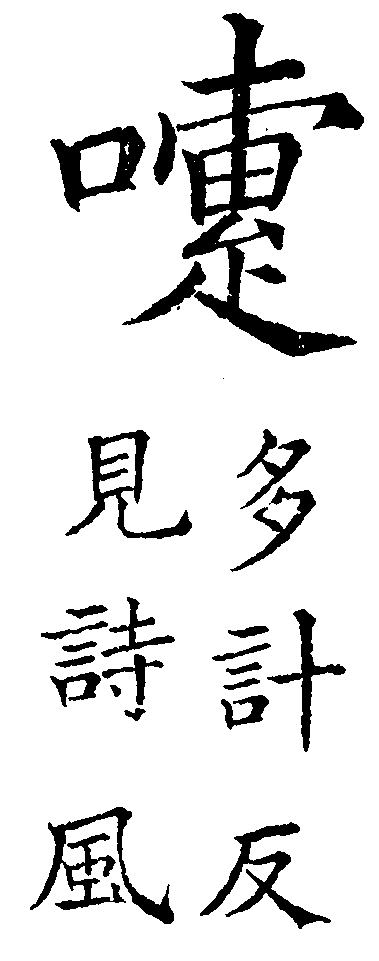 嚏
多計反
見詩風